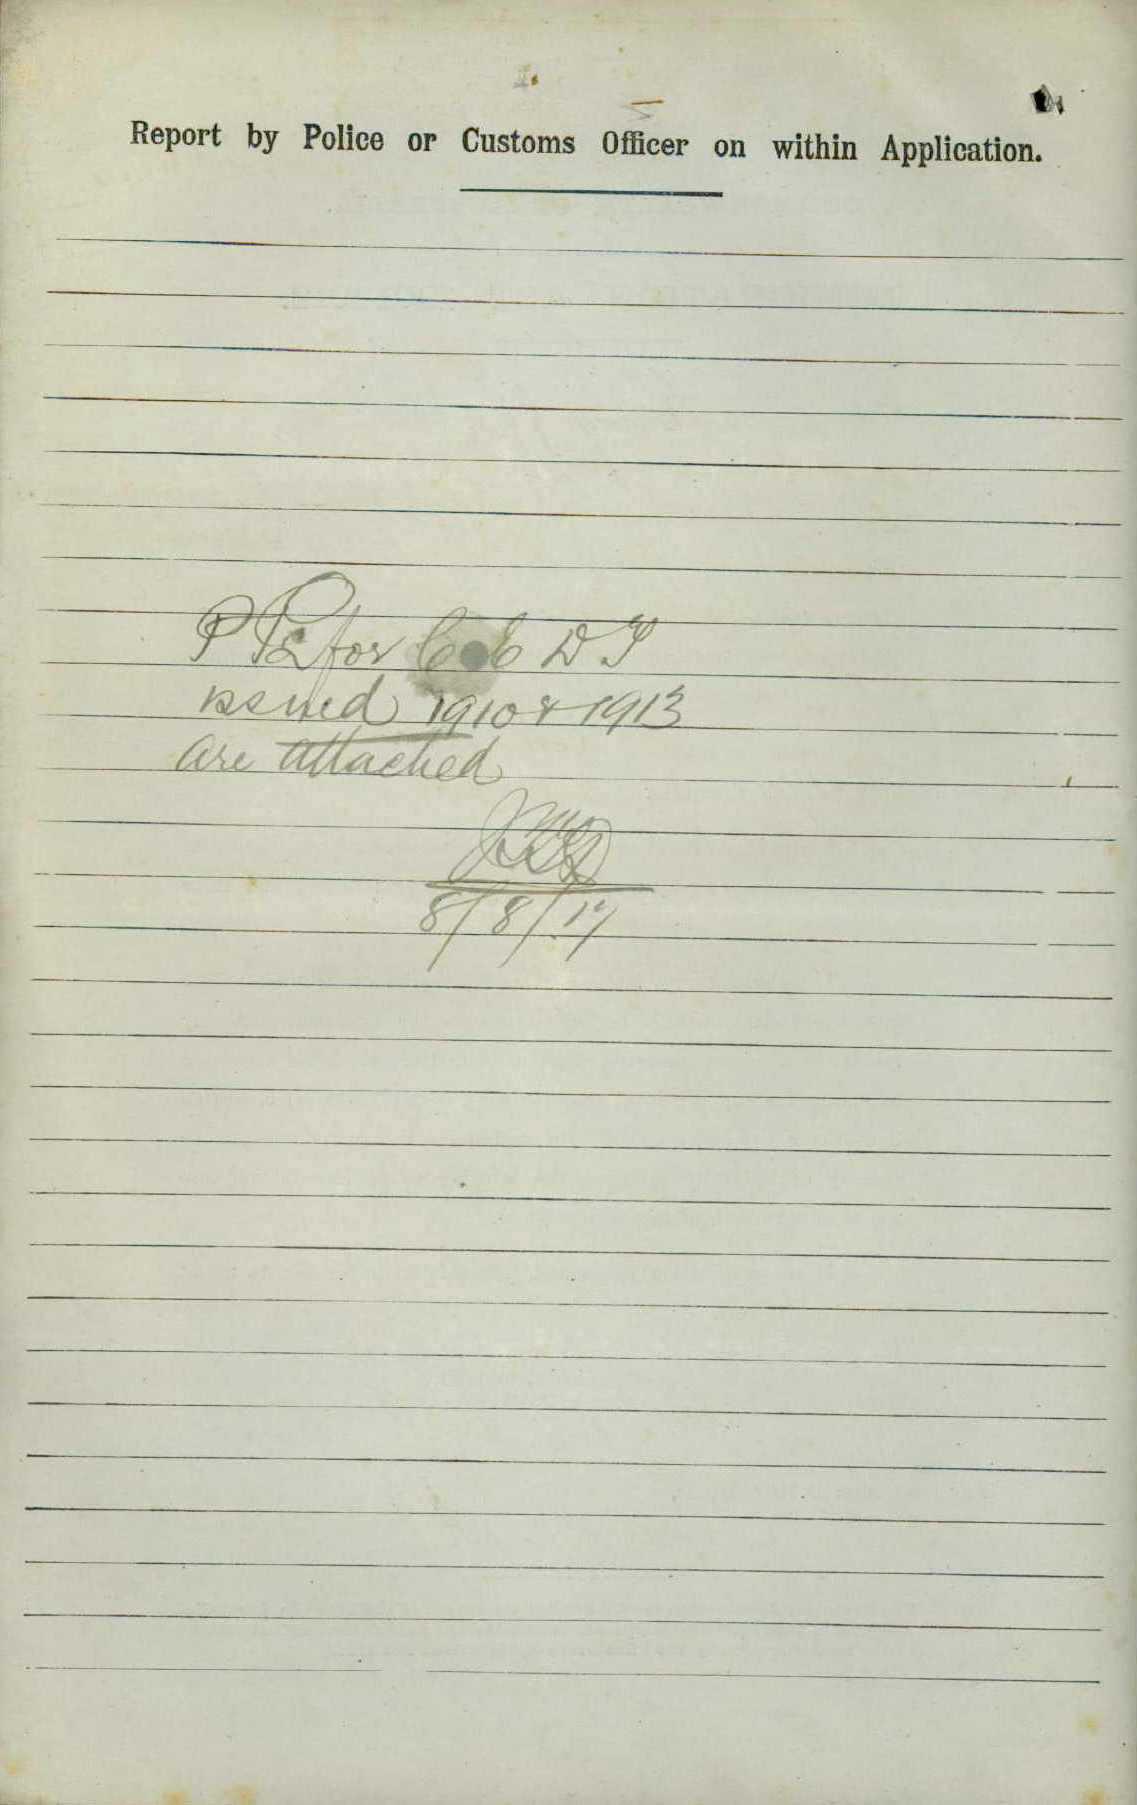 Report by Police or Customs Officer on within Application.
for C E D T
issued 1910 & 1913
are attached
8/8/17